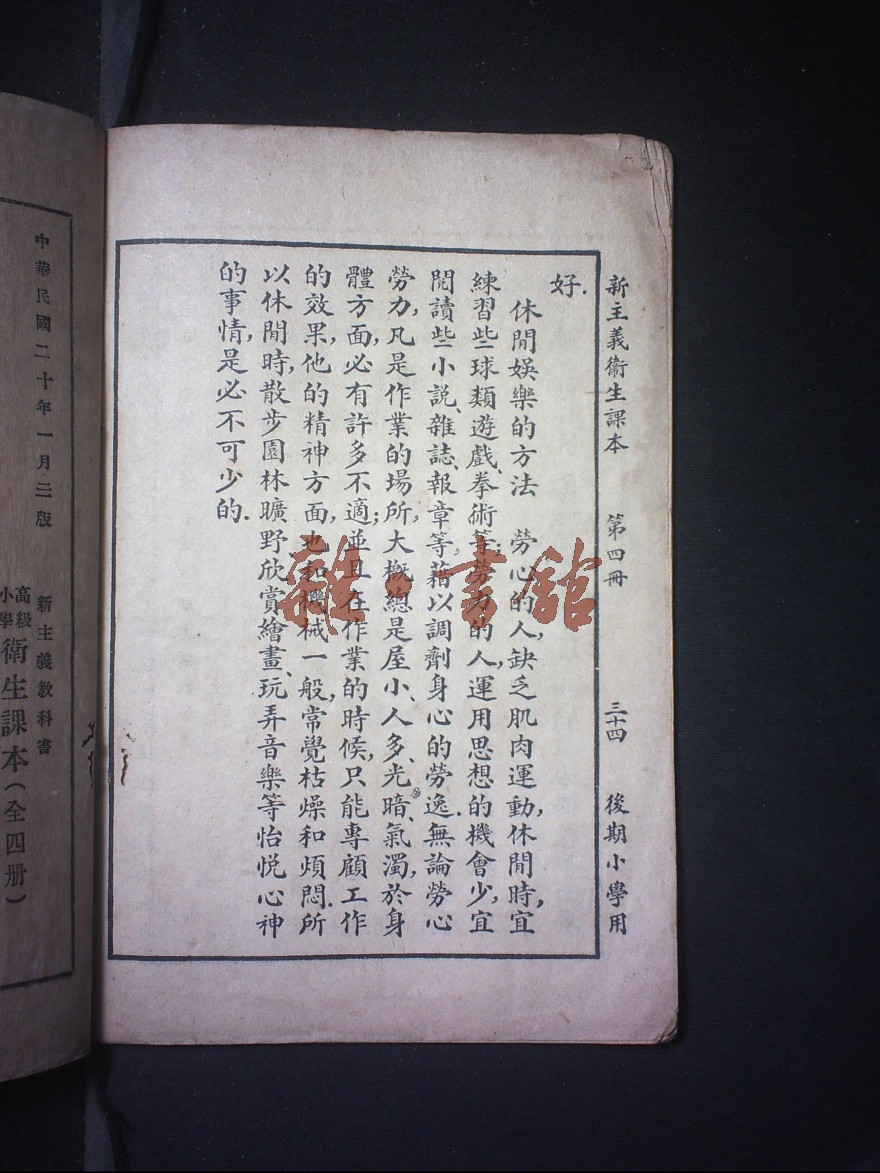 新主義衞生課本　第四冊　三十四　後期小學用
好.
休閒娛樂的方法　勞心的人,缺乏肌肉運動,休閒時,宜
練習些球類遊戲、拳術等;勞力的人,運用思想的機會少,宜
閱讀些小説、雜誌、報章等,藉以調劑身心的勞逸.無論勞心
勞力,凡是作業的場所,大概總是屋小、人多、光暗、氣濁,於身
體方面,必有許多不適;並且在作業的時候,只能專顧工作
的效果,他的精神方面,也和機械一般,常覺枯燥和煩悶.所
以休閒時,散步園林曠野、欣賞繪畫、玩弄音樂等怡悅心神
的事情,是必不可少的.
中華民國二十年一月二版
新主義教科書
高級小學衞生課本(全四册)
雜·書館